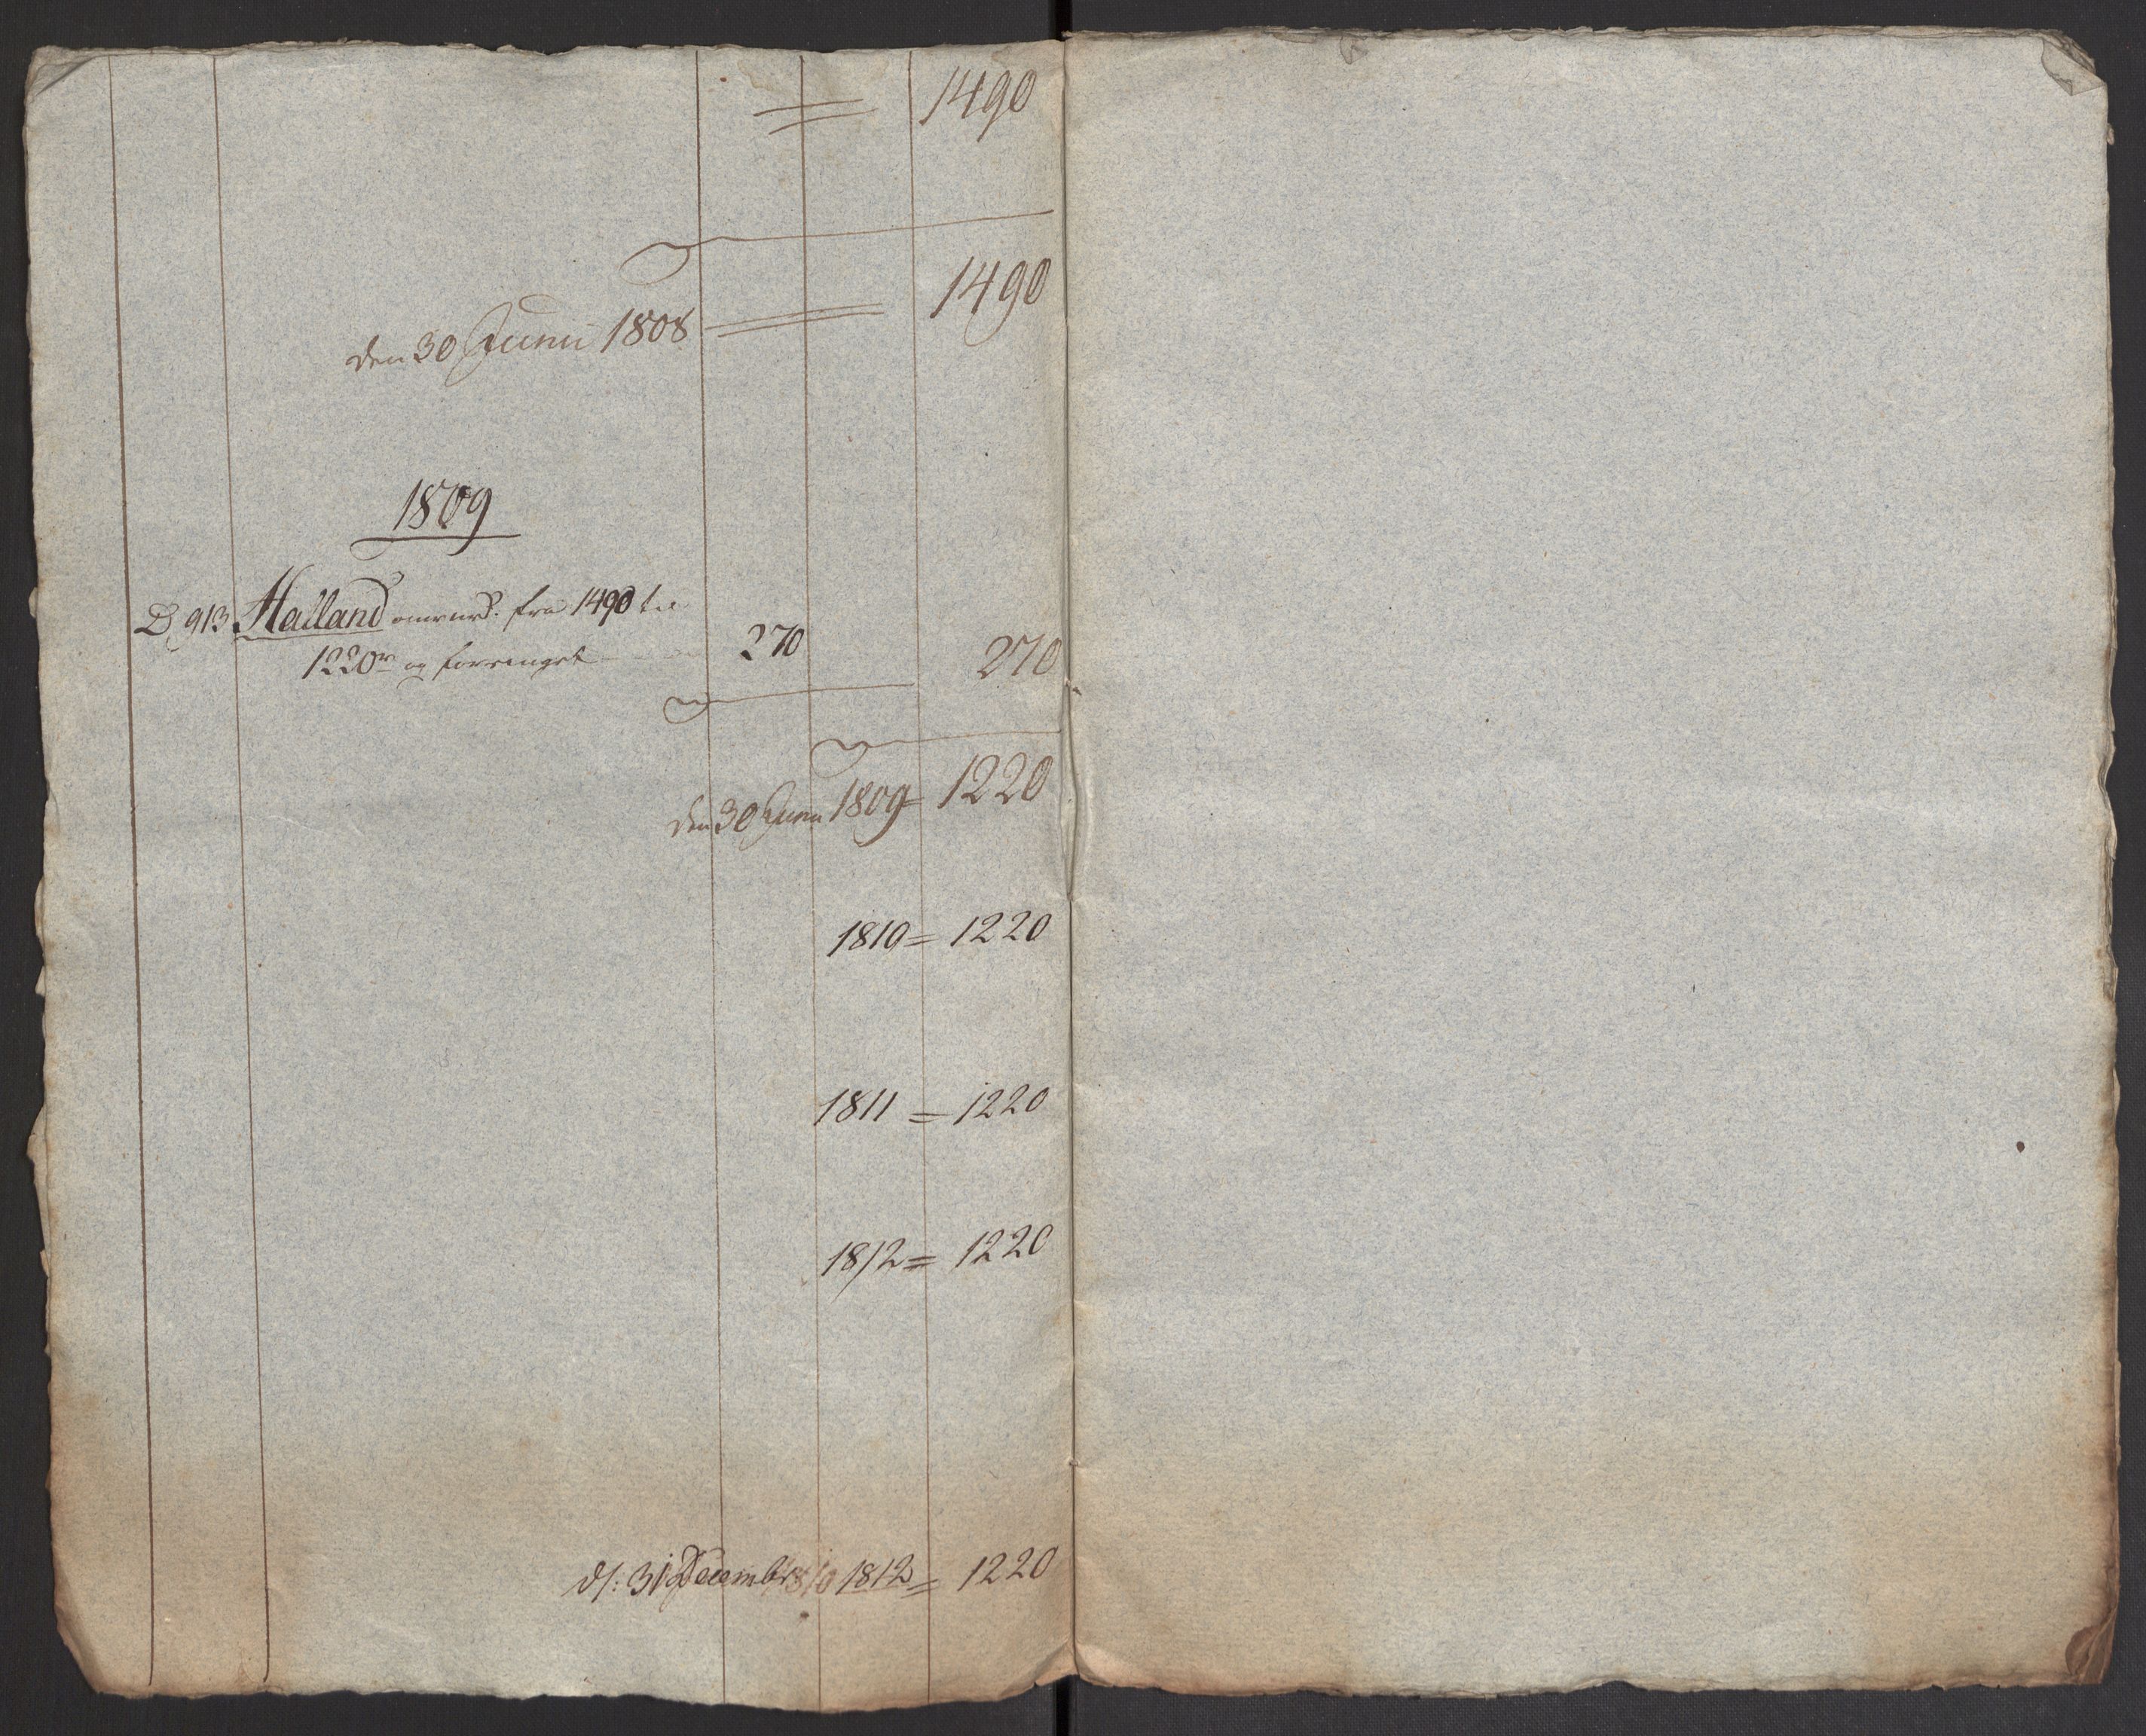 = 1490
den 30 Junii 1808 = 1490
1809
D 913 Halland omvurd. fra 1490 til
1220 r og forringet 270 270
den 30 Junii 1809 = 1220
1810 = 1220
1811 = 1220
1812 = 1220
d/: 31 Decembr 1812 = 1220